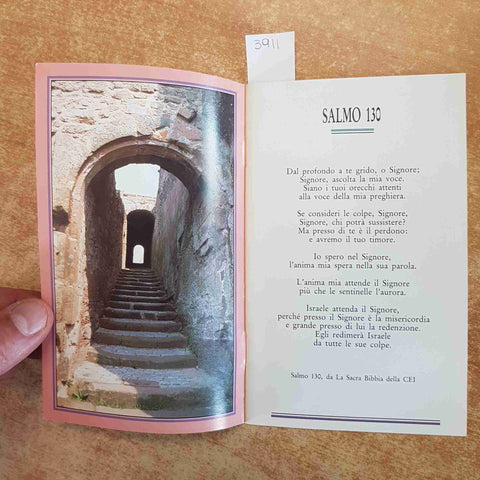 3911
SALMO 130
Dal profondo a te grido, o Signore;
Signore, ascolta la mia voce.
Siano i tuoi orecchi attenti
alla voce della mia preghiera.
Se consideri le colpe, Signore,
Signore, chi potrà sussistere?
Ma presso di te è il perdono:
e avremo il tuo timore.
Io spero nel Signore,
l'anima mia spera nella sua parola.
L'anima mia attende il Signore
più che le sentinelle l'aurora.
Israele attenda il Signore,
perché presso il Signore è la misericordia
e grande presso di lui la redenzione.
Egli redimerà Israele
da tutte le sue colpe.
Salmo 130, da La Sacra Bibbia della CEI